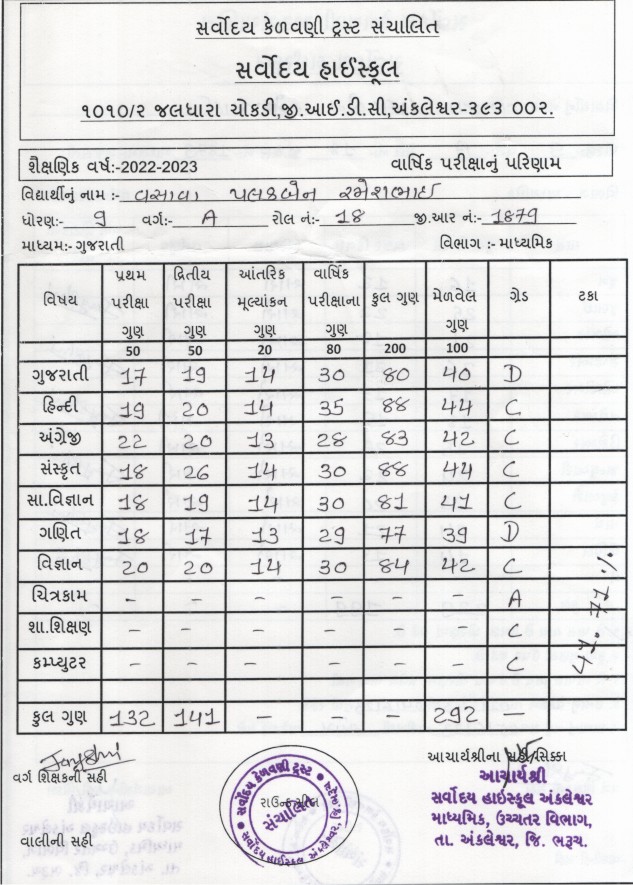 સર્વોદય કેળવણી ટ્રસ્ટ સંચાલિત
સર્વોદય હાઈસ્કૂલ
૧૦૧૦/૨ જલધારા ચોકડી,જી.આઈ.ડી.સી,અંકલેશ્વર-૩૯૩ ૦૦૨.
શૈક્ષણિક વર્ષ:-2022-2023 વાર્ષિક પરીક્ષાનું પરિણામ
વિદ્યાર્થીનું નામ :- વસાવા પલકબેન રમેશભાઇ
ધોરણ:- 9 વર્ગ:- A રોલ નં:- 18 જી.આર નં:- 1879
માધ્યમ:- ગુજરાતી વિભાગ :- માધ્યમિક
વિષય પ્રથમ પરીક્ષા ગુણ દ્વિતીય પરીક્ષા ગુણ આંતરિક મૂલ્યાંકન ગુણ વાર્ષિક પરીક્ષાના ગુણ કુલ ગુણ મેળવેલ ગુણ ગ્રેડ ટકા
50 50 20 80 200 100
ગુજરાતી 17 19 14 30 80 40 D
હિન્દી 19 20 14 35 88 44 C
અંગ્રેજી 22 20 13 28 83 42 C
સંસ્કૃત 18 26 14 30 88 44 C
સા.વિજ્ઞાન 18 19 14 30 81 41 C
ગણિત 18 17 13 29 77 39 D
વિજ્ઞાન 20 20 14 30 84 42 C
ચિત્રકામ - - - - - - A
શા.શિક્ષણ - - - - - - C
કમ્પ્યુટર - - - - - - C
41.71 %
કુલ ગુણ 132 141 - - - 292
Jayshri
વર્ગ શિક્ષકની સહી
વાલીની સહી
સર્વોદય કેળવણી ટ્રસ્ટ
રાઉન્ડ સીલ
સંચાલિત
સર્વોદય હાઈસ્કૂલ અંકલેશ્વર
આચાર્યશ્રીના સહી/સિક્કા
આચાર્યશ્રી
સર્વોદય હાઈસ્કૂલ અંકલેશ્વર
માધ્યમિક, ઉચ્ચતર વિભાગ,
તા. અંકલેશ્વર, જિ. ભરૂચ.